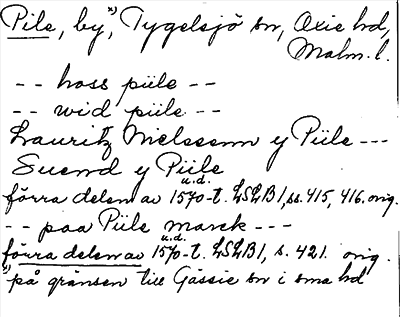 Pile, by,*) Tygelsjö sn, Oxie hd,
Malm. l.
-- hoss piile --
-- wid piile --
Lauritz Nielssenn y Piile ---
Suend y Piile
förra delen av 1570-t. u.d. LSLB1, ss. 415, 416. orig.
-- paa Piile marck ---
förra delen av 1570-t. u.d. LSLB1, s. 421. orig.
*) på gränsen till Gässie sn i sma hd